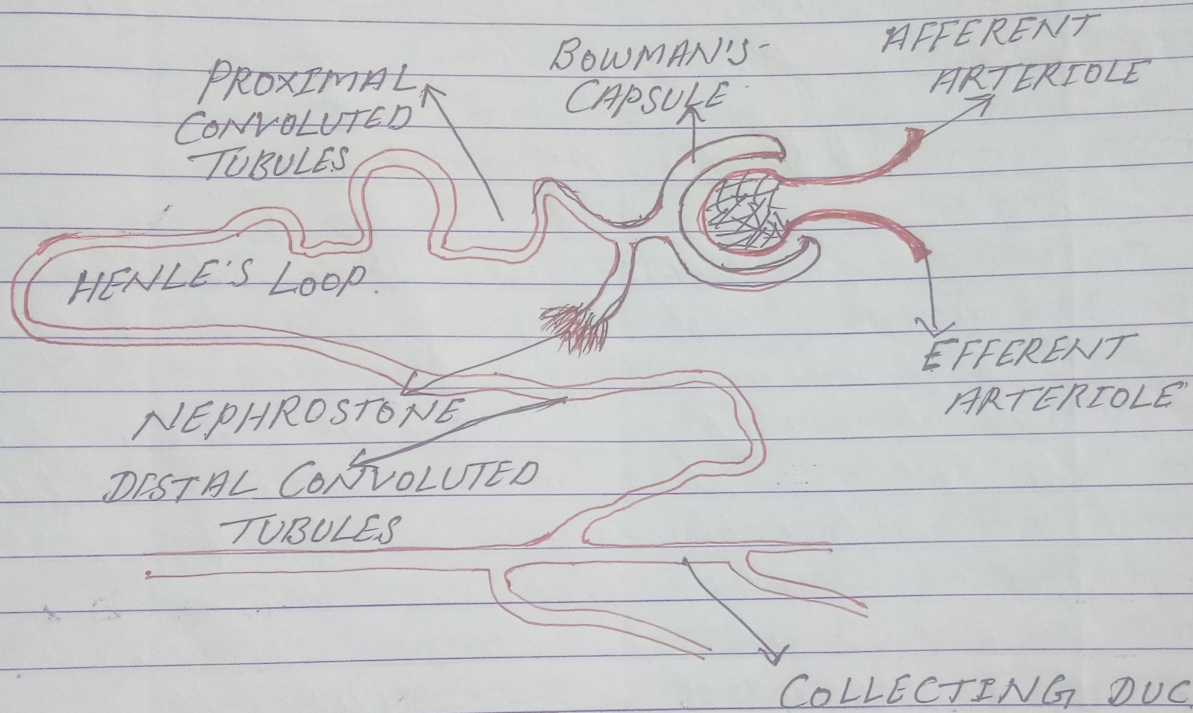 PROXIMAL
CONVOLUTED
TUBULES
BOWMAN'S-
CAPSULE
AFFERENT
ARTERIOLE
HENLE'S LOOP.
EFFERENT
ARTERIOLE
NEPHROSTONE
DISTAL CONVOLUTED
TUBULES
COLLECTING DUC